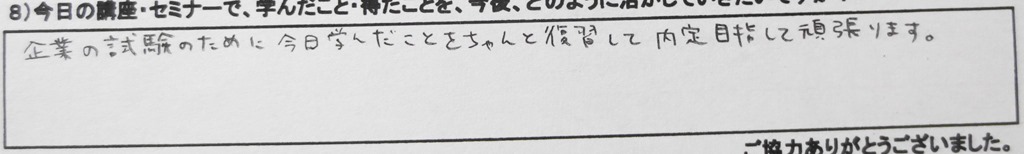 8)今日の講座・セミナーで、学んだこと・得たことを、今後、どのように活かしていきたいですか
企業の試験のために今日学んだことをちゃんと復習して内定目指して頑張ります。
ご協力ありがとうございました。